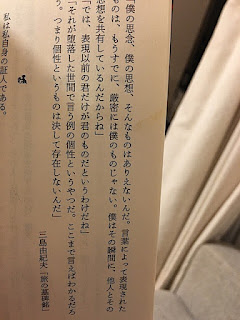 「僕の思念、僕の思想、そんなものはありえないんだ。言葉によって表現された
ものは、もうすでに、厳密には僕のものじゃない。僕はその瞬間に、他人とその
思想を共有しているんだからね」
「では、表現以前の君だけが君のものだというわけだね」
「それが堕落した世間で言う例の個性というやつだ。ここまで言えばわかるだろ
う。つまり個性というものは決して存在しないんだ」
三島由紀夫『旅の墓碑銘』
私は私自身の証人である。